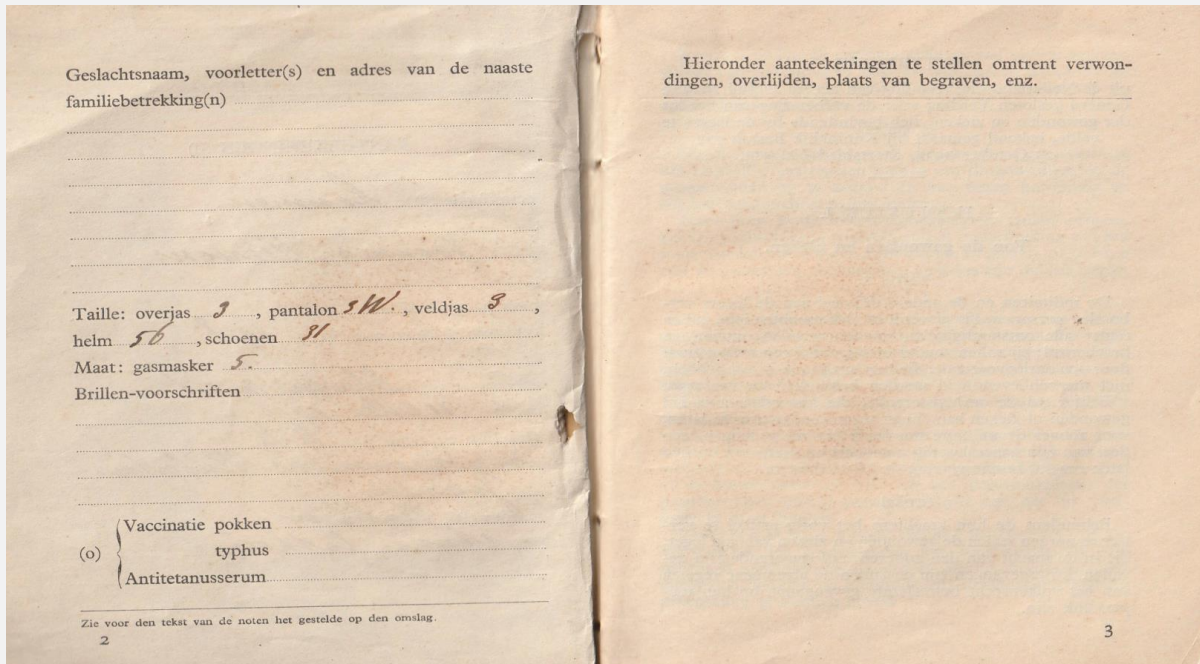 Geslachtsnaam, voorletter(s) en adres van de naaste
familiebetrekking(n)
Taille: overjas 3 , pantalon 3W. , veldjas 3 ,
helm 56 , schoenen 31
Maat: gasmasker 5.
Brillen-voorschriften
(o) Vaccinatie pokken
typhus
Antitetanusserum
Zie voor den tekst van de noten het gestelde op den omslag.
2
Hieronder aanteekeningen te stellen omtrent verwon-
dingen, overlijden, plaats van begraven, enz.
3